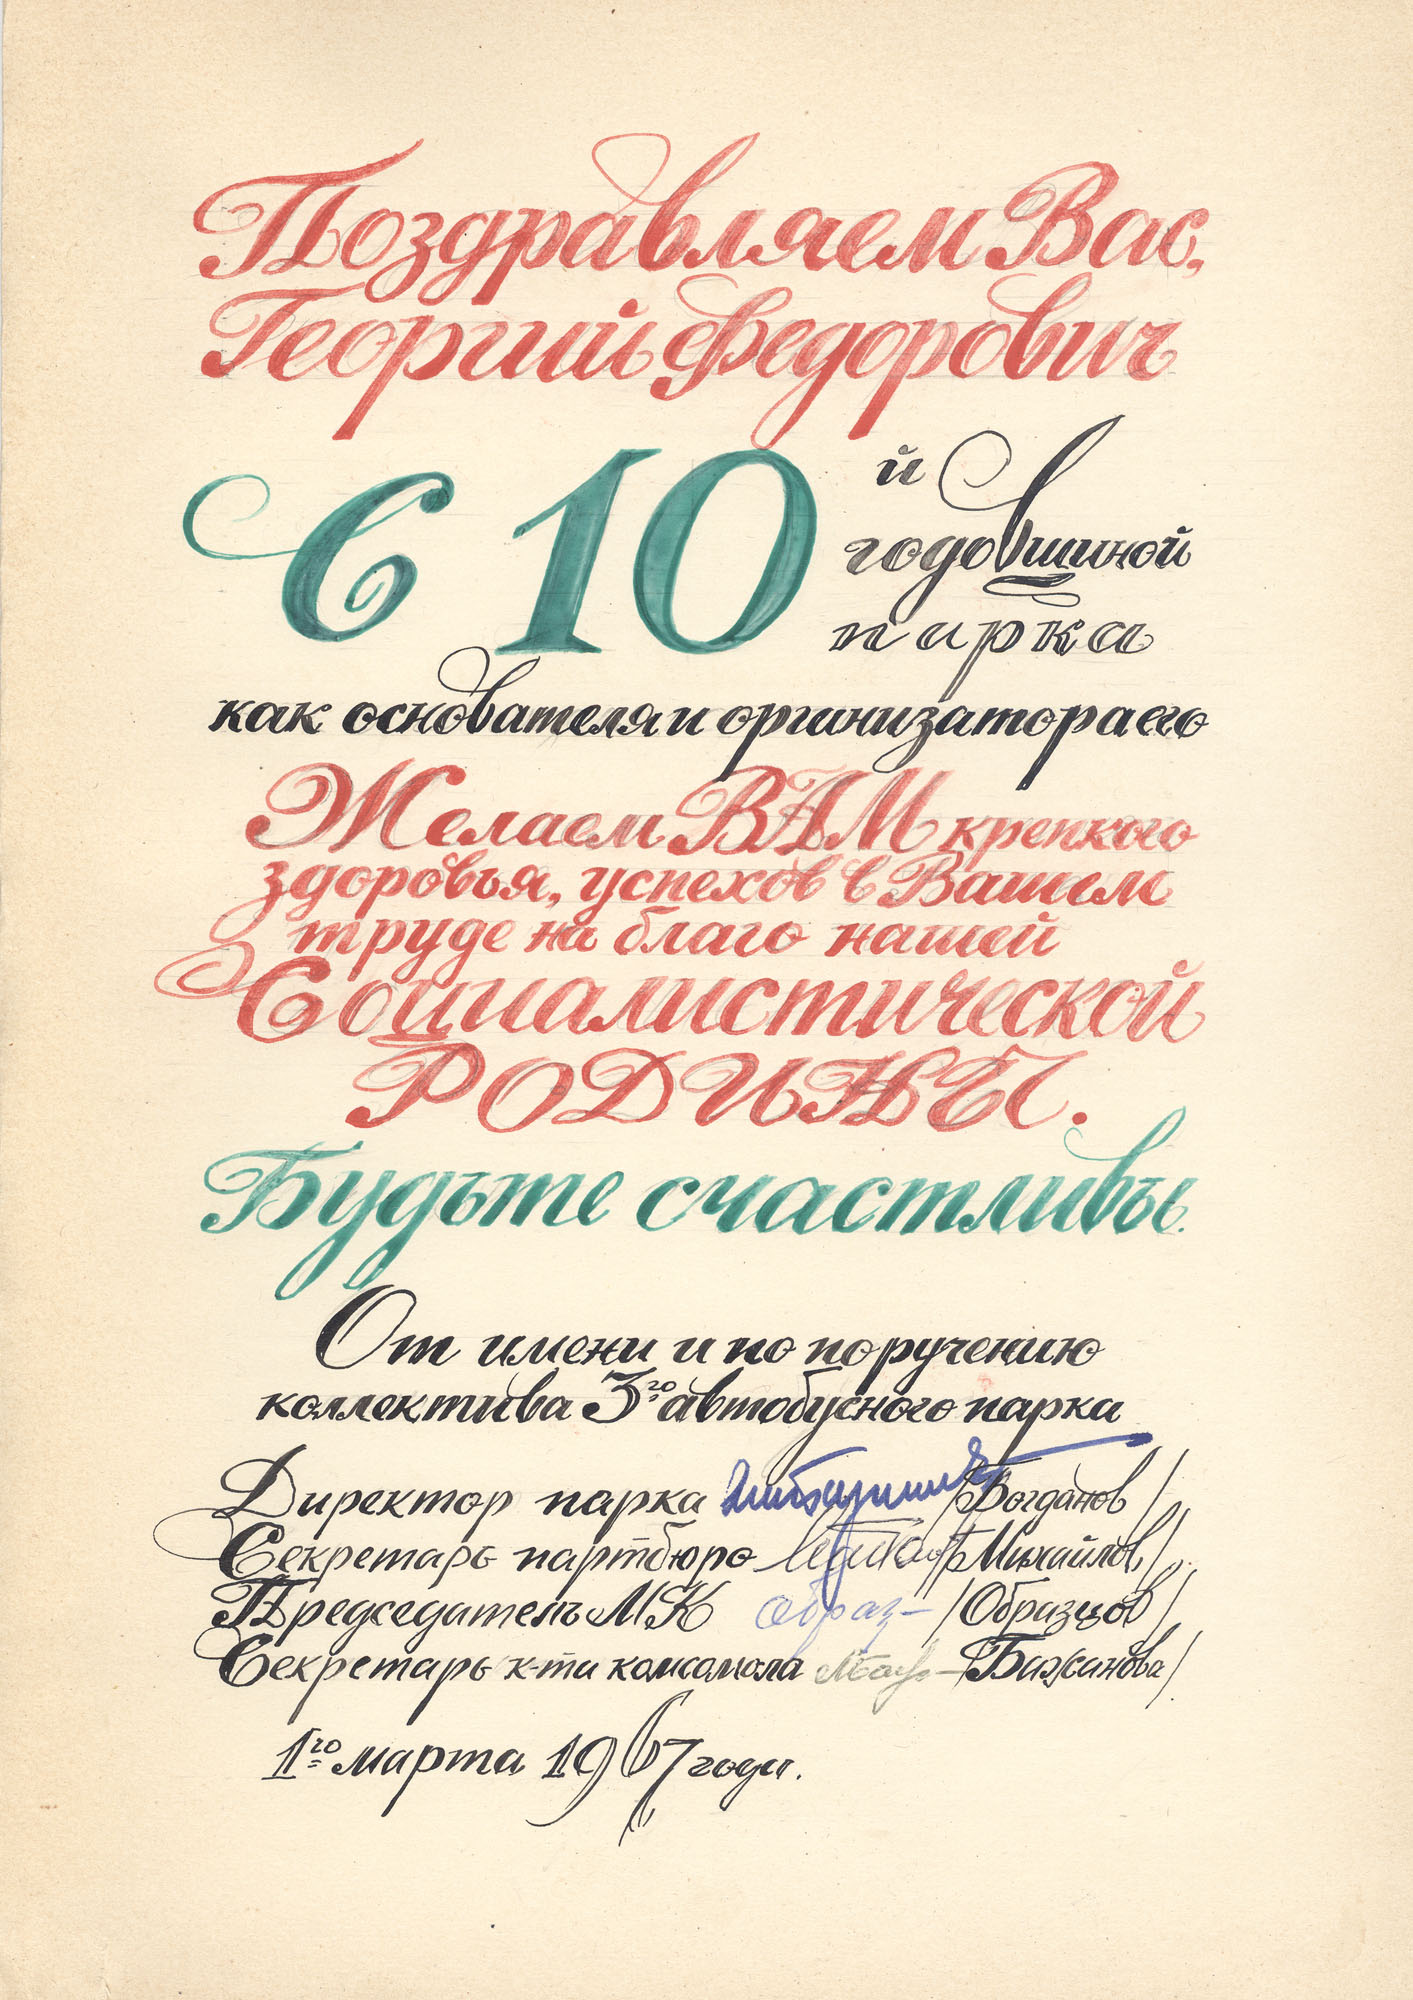 Поздравляем Вас,
Георгий Федорович
С 10й
годовщиной
парка
как основателя и организатора его
Желаем ВАМ крепкого
здоровья, успехов в Вашем
труде на благо нашей
Социалистической
РОДИНЫ.
Будьте счастливы.
От имени и по поручению
коллектива 3го автобусного парка
Директор парка /Богданов/
Секретарь партбюро /Михайлов/
Председатель МК Образ- /Образцов/
Секретарь к-та комсомола /Бажанова/
1го марта 1967 года.